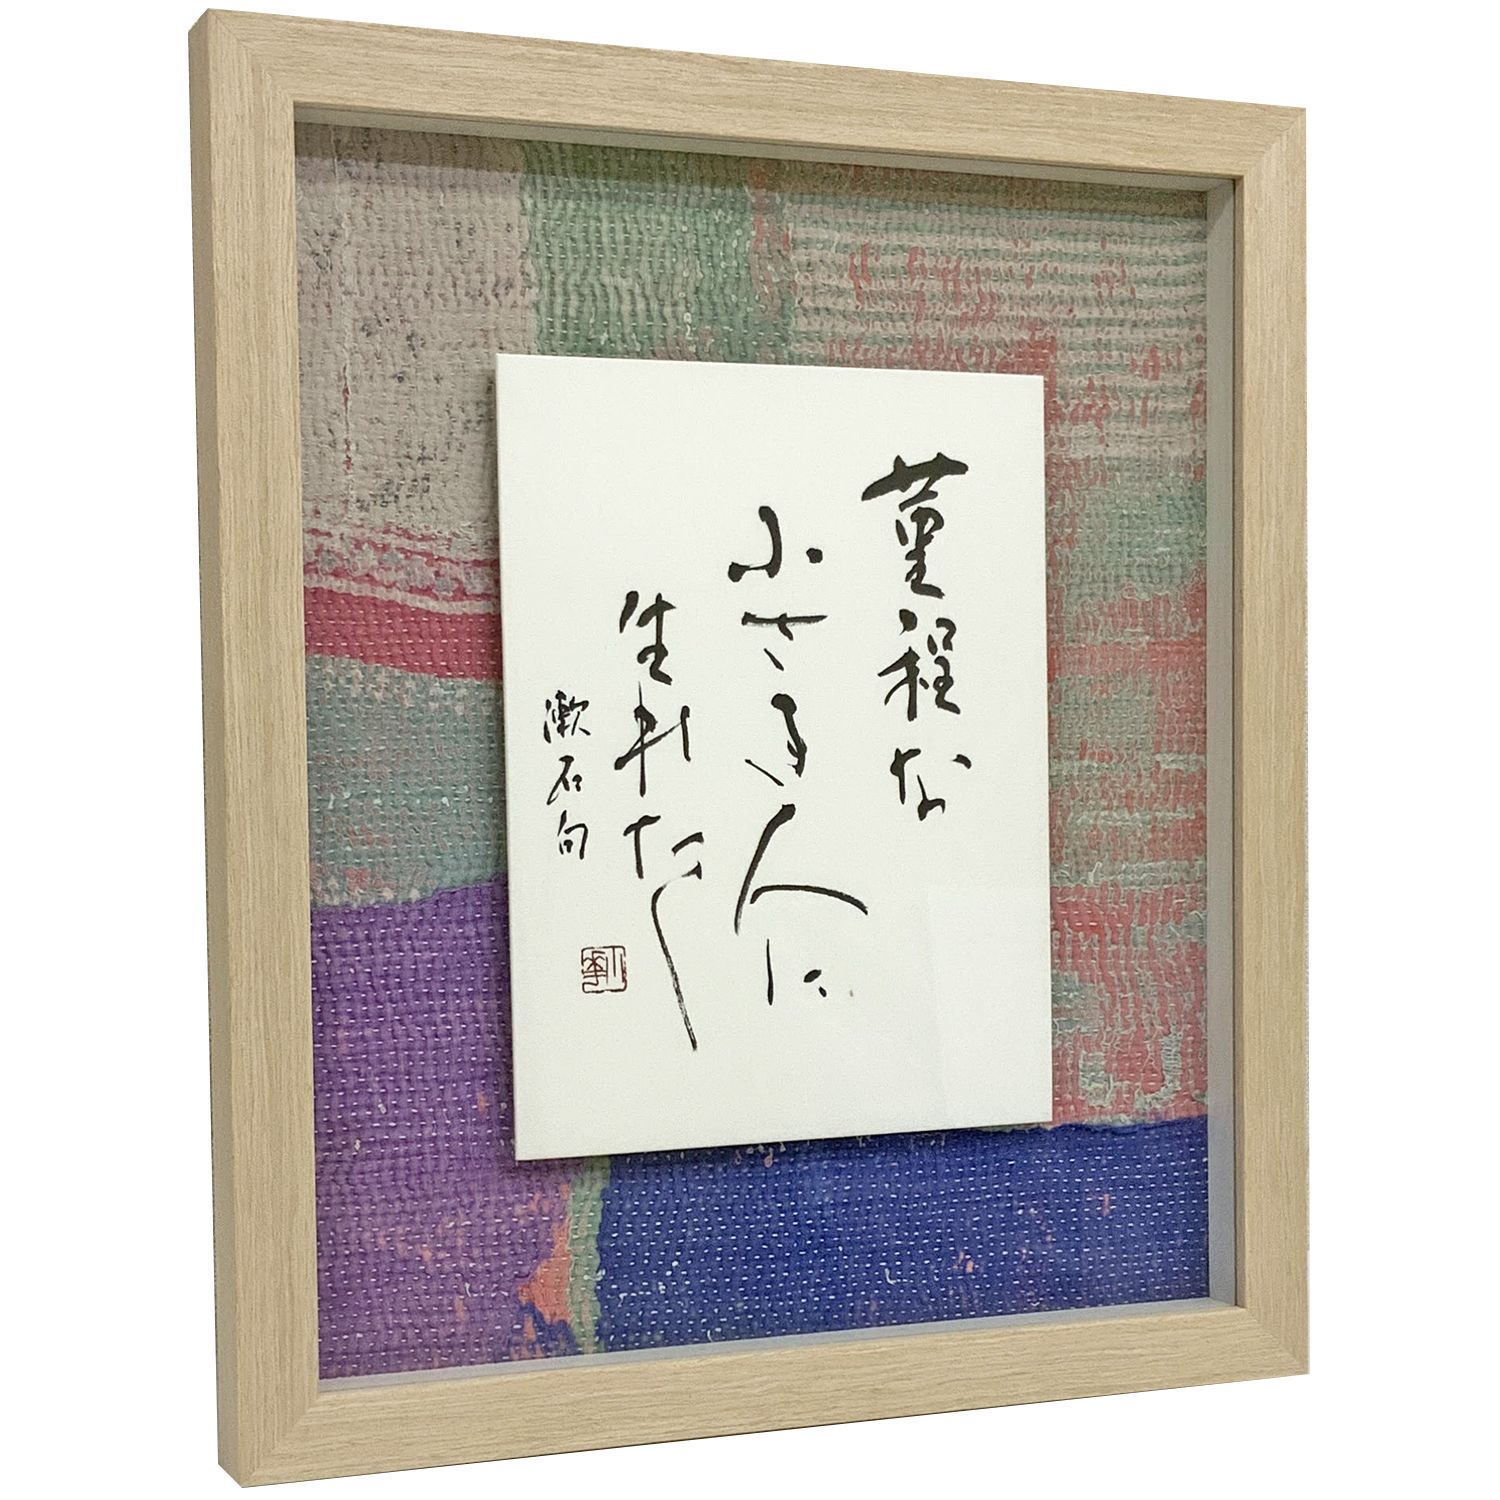 菫程な
小さき人に
生れたし
漱石句